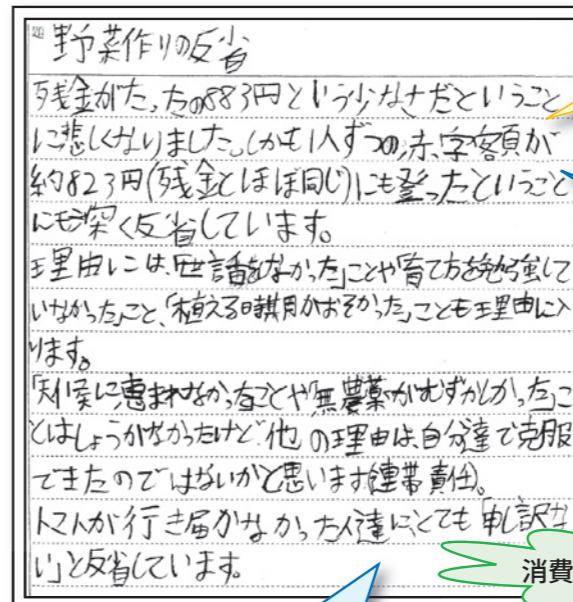 野菜作りの反省
残金がたったの883円という少なさだということ
に悲しくなりました。しかも1人ずつの、赤字客頁が
約823円(残金とほぼ同じ)にも登ったということ
にも深く反省しています。
理由には、「世話をしなかった」ことや「育て方を勉強して
いなかった」こと、「植える時期がおそかった」ことも理由に入
ります。
「天候に恵まれなかった」ことや「無農薬がむずかしかった」こ
とはしょうがなかったけど、他の理由は、自分達で克服
できたのではないかと思います(連帯責任)。
トマトが行き届かなかった人達に、とても「申し訳な
い」と反省しています。
消費